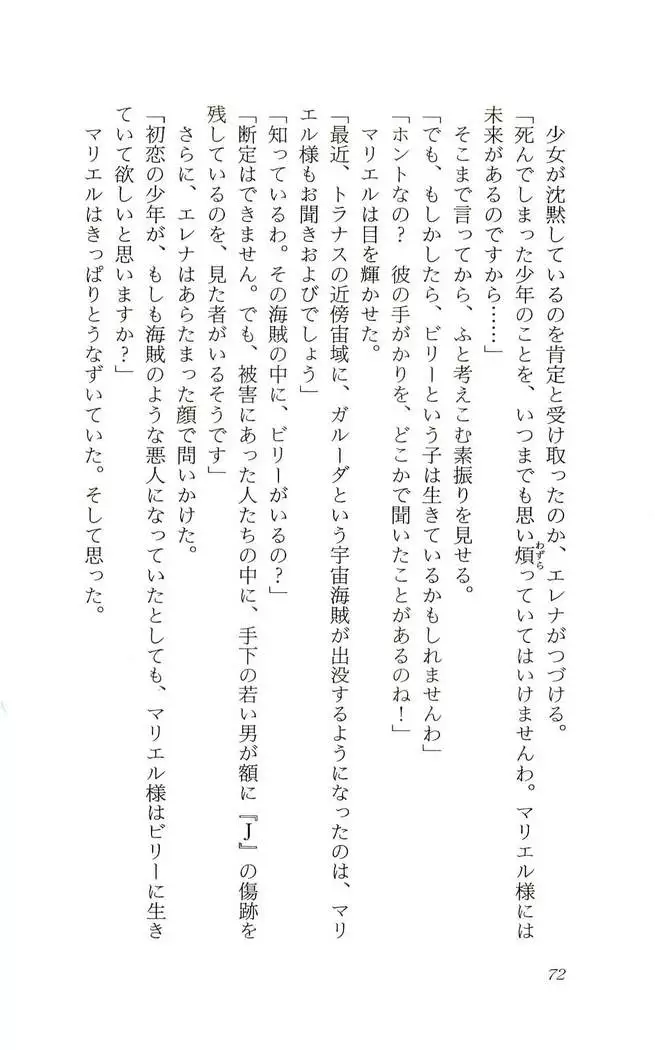 少女が沈黙しているのを肯定と受け取ったのか、エレナがつづける。
「死んでしまった少年のことを、いつまでも思い煩っていてはいけませんわ。マリエル様には
わずら
未来があるのですから……」
そこまで言ってから、ふと考えこむ素振りを見せる。
「でも、もしかしたら、ビリーという子は生きているかもしれませんわ」
「ホントなの？　彼の手がかりを、どこかで聞いたことがあるのね！」
マリエルは目を輝かせた。
「最近、トラナスの近傍宙域に、ガルーダという宇宙海賊が出没するようになったのは、マリ
エル様もお聞きおよびでしょう」
「知っているわ。その海賊の中に、ビリーがいるの？」
「断定はできません。でも、被害にあった人たちの中に、手下の若い男が額に『J』の傷跡を
残しているのを、見た者がいるそうです」
さらに、エレナはあらたまった顔で問いかけた。
「初恋の少年が、もしも海賊のような悪人になっていたとしても、マリエル様はビリーに生き
ていて欲しいと思いますか？」
マリエルはきっぱりとうなずいていた。そして思った。
72